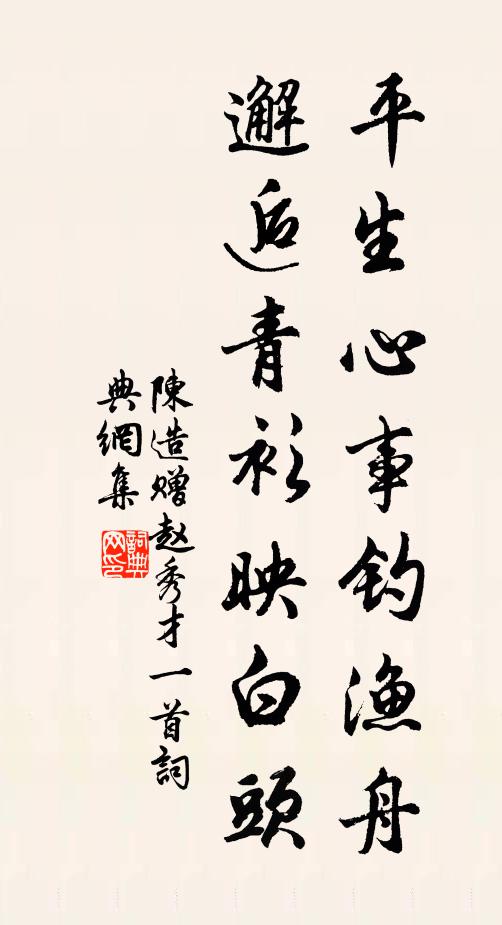 平生心事钓渔舟
邂逅青衫映白頭
陳造赠赵秀才一首詞
典網集
詞典
网印